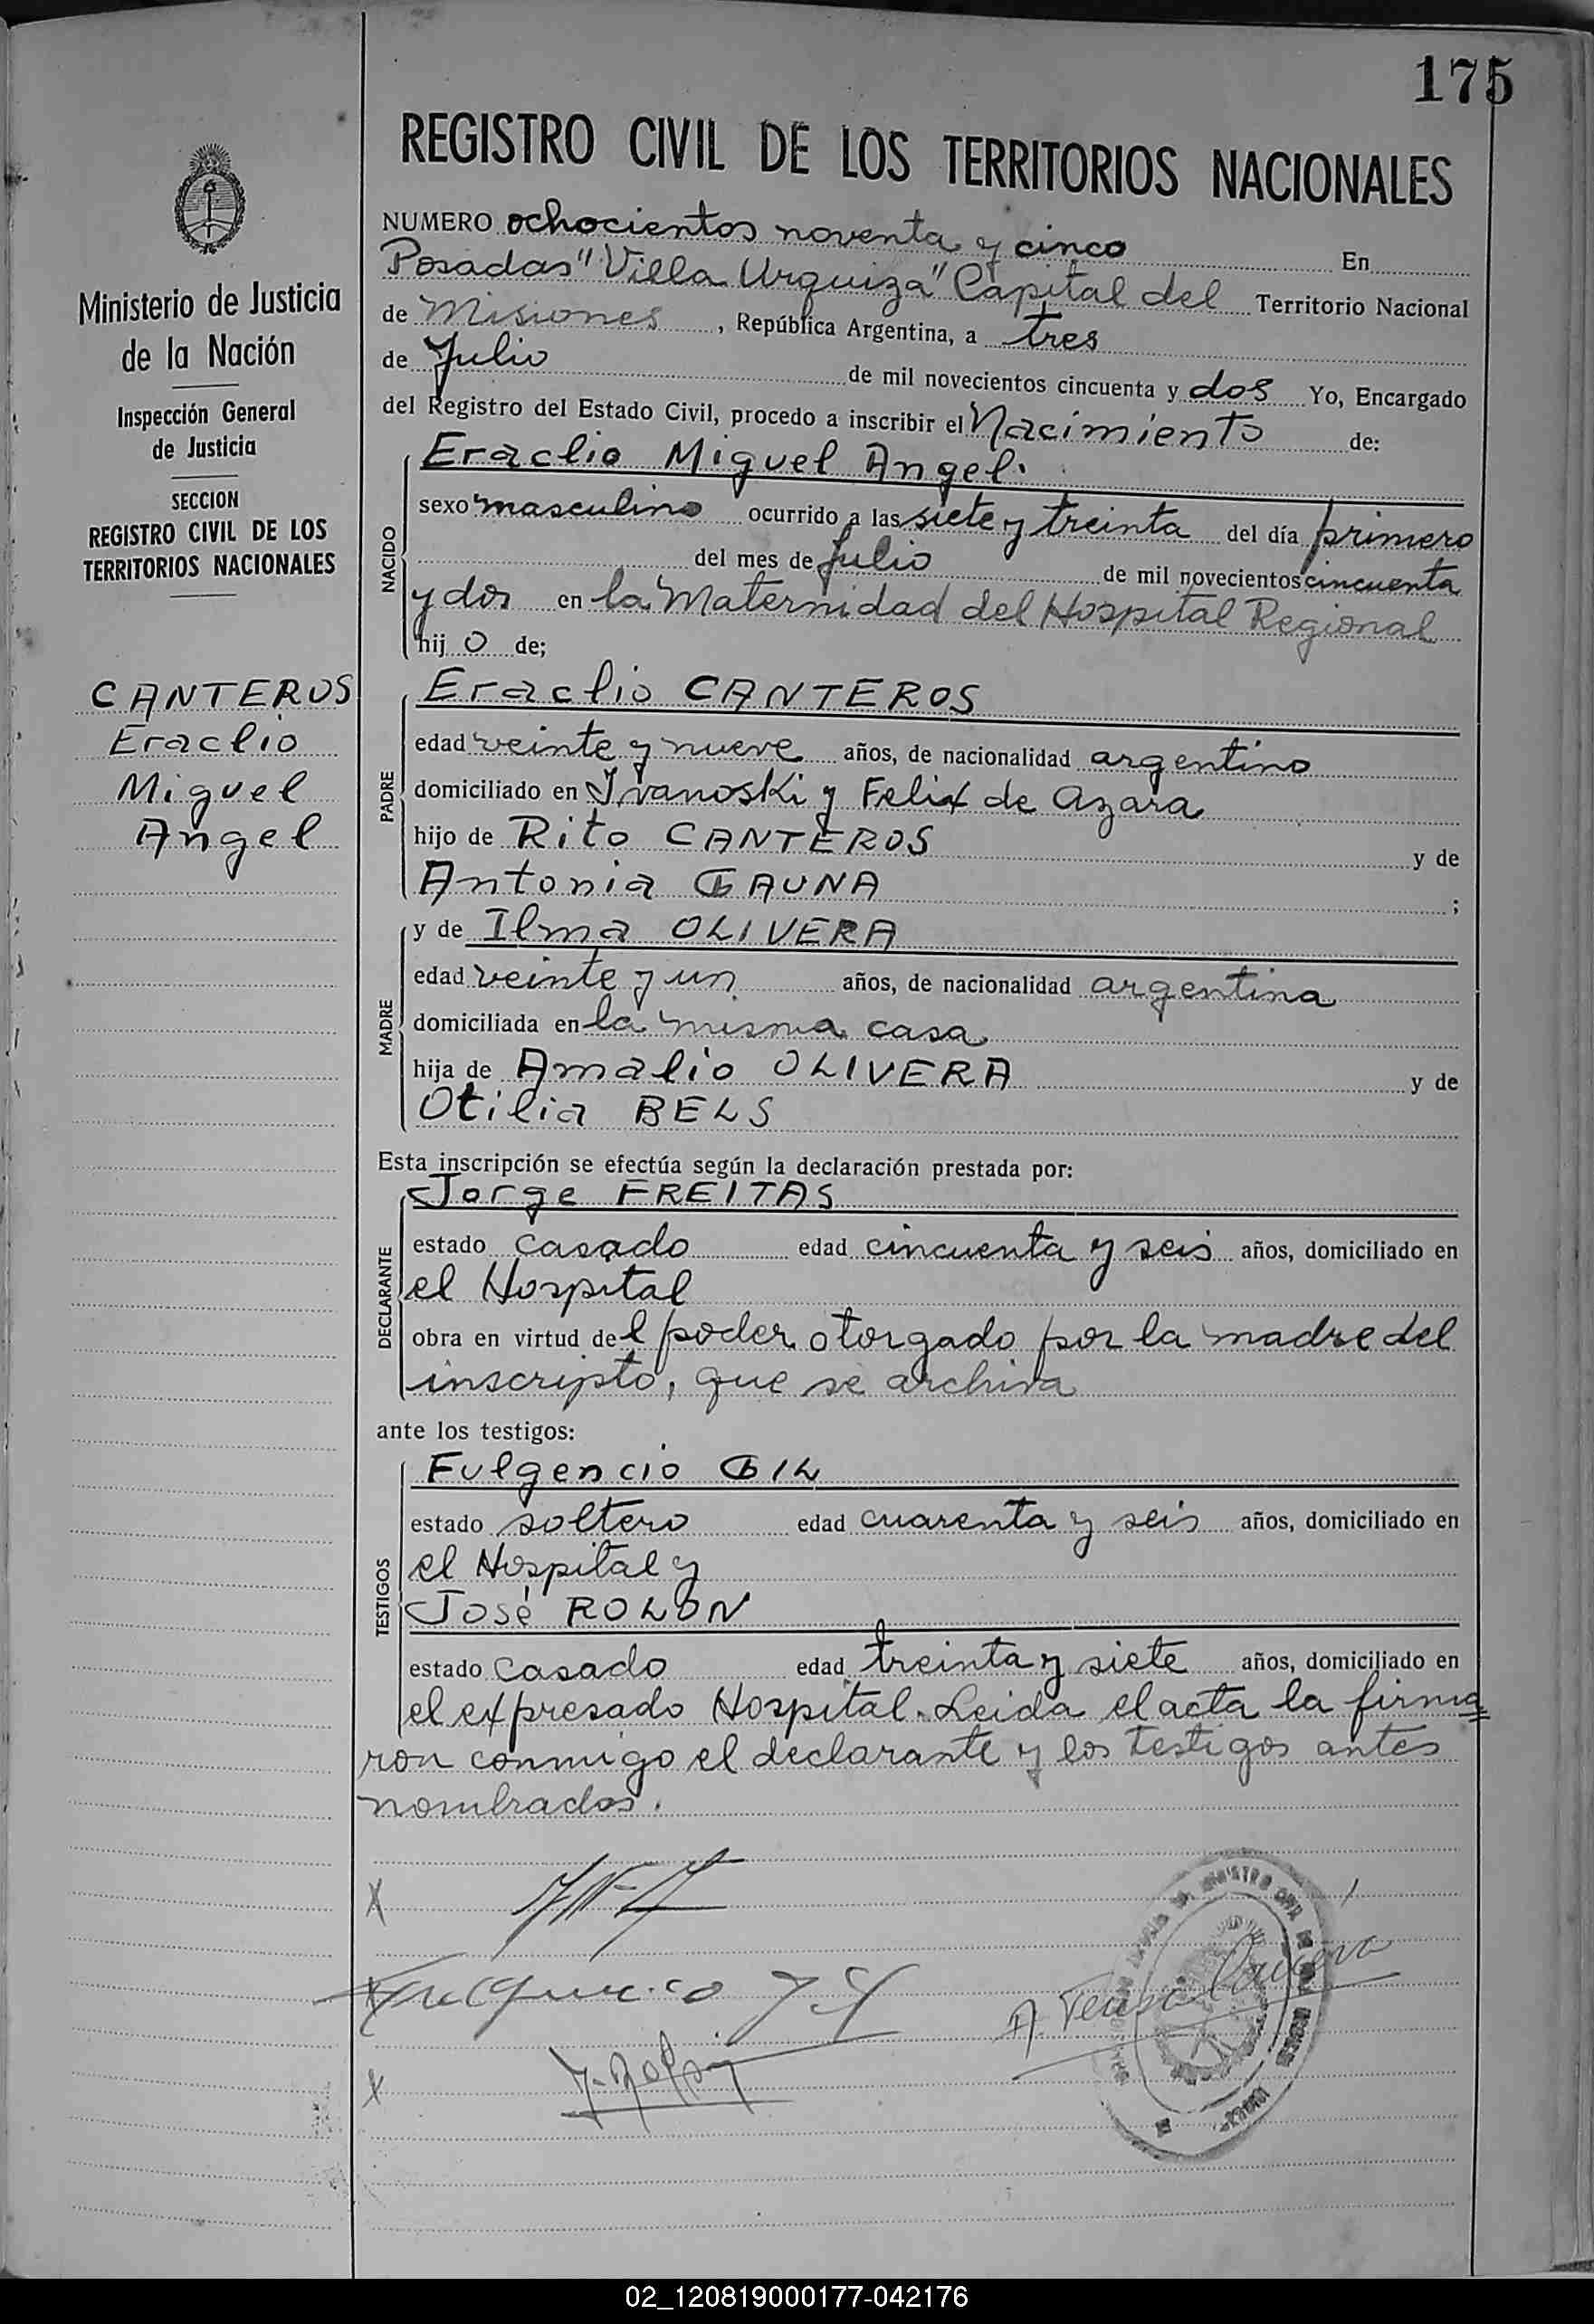 175
REGISTRO CIVIL DE LOS TERRITORIOS NACIONALES
Ministerio de Justicia
de la Nación
Inspección General
de Justicia
SECCION
REGISTRO CIVIL DE LOS
TERRITORIOS NACIONALES
CANTEROS
Eraclio
Miguel
Angel
NUMERO ochocientos noventa y cinco En
Posadas "Villa Urquiza" Capital del Territorio Nacional
de Misiones, República Argentina, a tres
de Julio de mil novecientos cincuenta y dos Yo, Encargado
del Registro del Estado Civil, procedo a inscribir el Nacimiento de:
Eraclio Miguel Angel.
NACIDO
sexo masculino ocurrido a las siete y treinta del día primero
del mes de Julio de mil novecientos cincuenta
y dos en la Maternidad del Hospital Regional
hijo de;
Eraclio CANTEROS
PADRE
edad veinte y nueve años, de nacionalidad argentino
domiciliado en Ivanoski y Felix de Azara
hijo de Rito CANTEROS y de
Antonia GAUNA ;
y de Ilma OLIVERA
MADRE
edad veinte y un años, de nacionalidad argentina
domiciliada en la misma casa
hija de Amalio OLIVERA y de
Otilia BELS
Esta inscripción se efectúa según la declaración prestada por:
Jorge FREITAS
DECLARANTE
estado casado edad cincuenta y seis años, domiciliado en
el Hospital
obra en virtud del poder otorgado por la madre del
inscripto, que se archiva
ante los testigos:
Fulgencio GIL
TESTIGOS
estado soltero edad cuarenta y seis años, domiciliado en
el Hospital y
José ROLON
estado casado edad treinta y siete años, domiciliado en
el expresado Hospital. Leida el acta la firma=
ron conmigo el declarante y los testigos antes
nombrados.
X
X
X
02_120819000177-042176